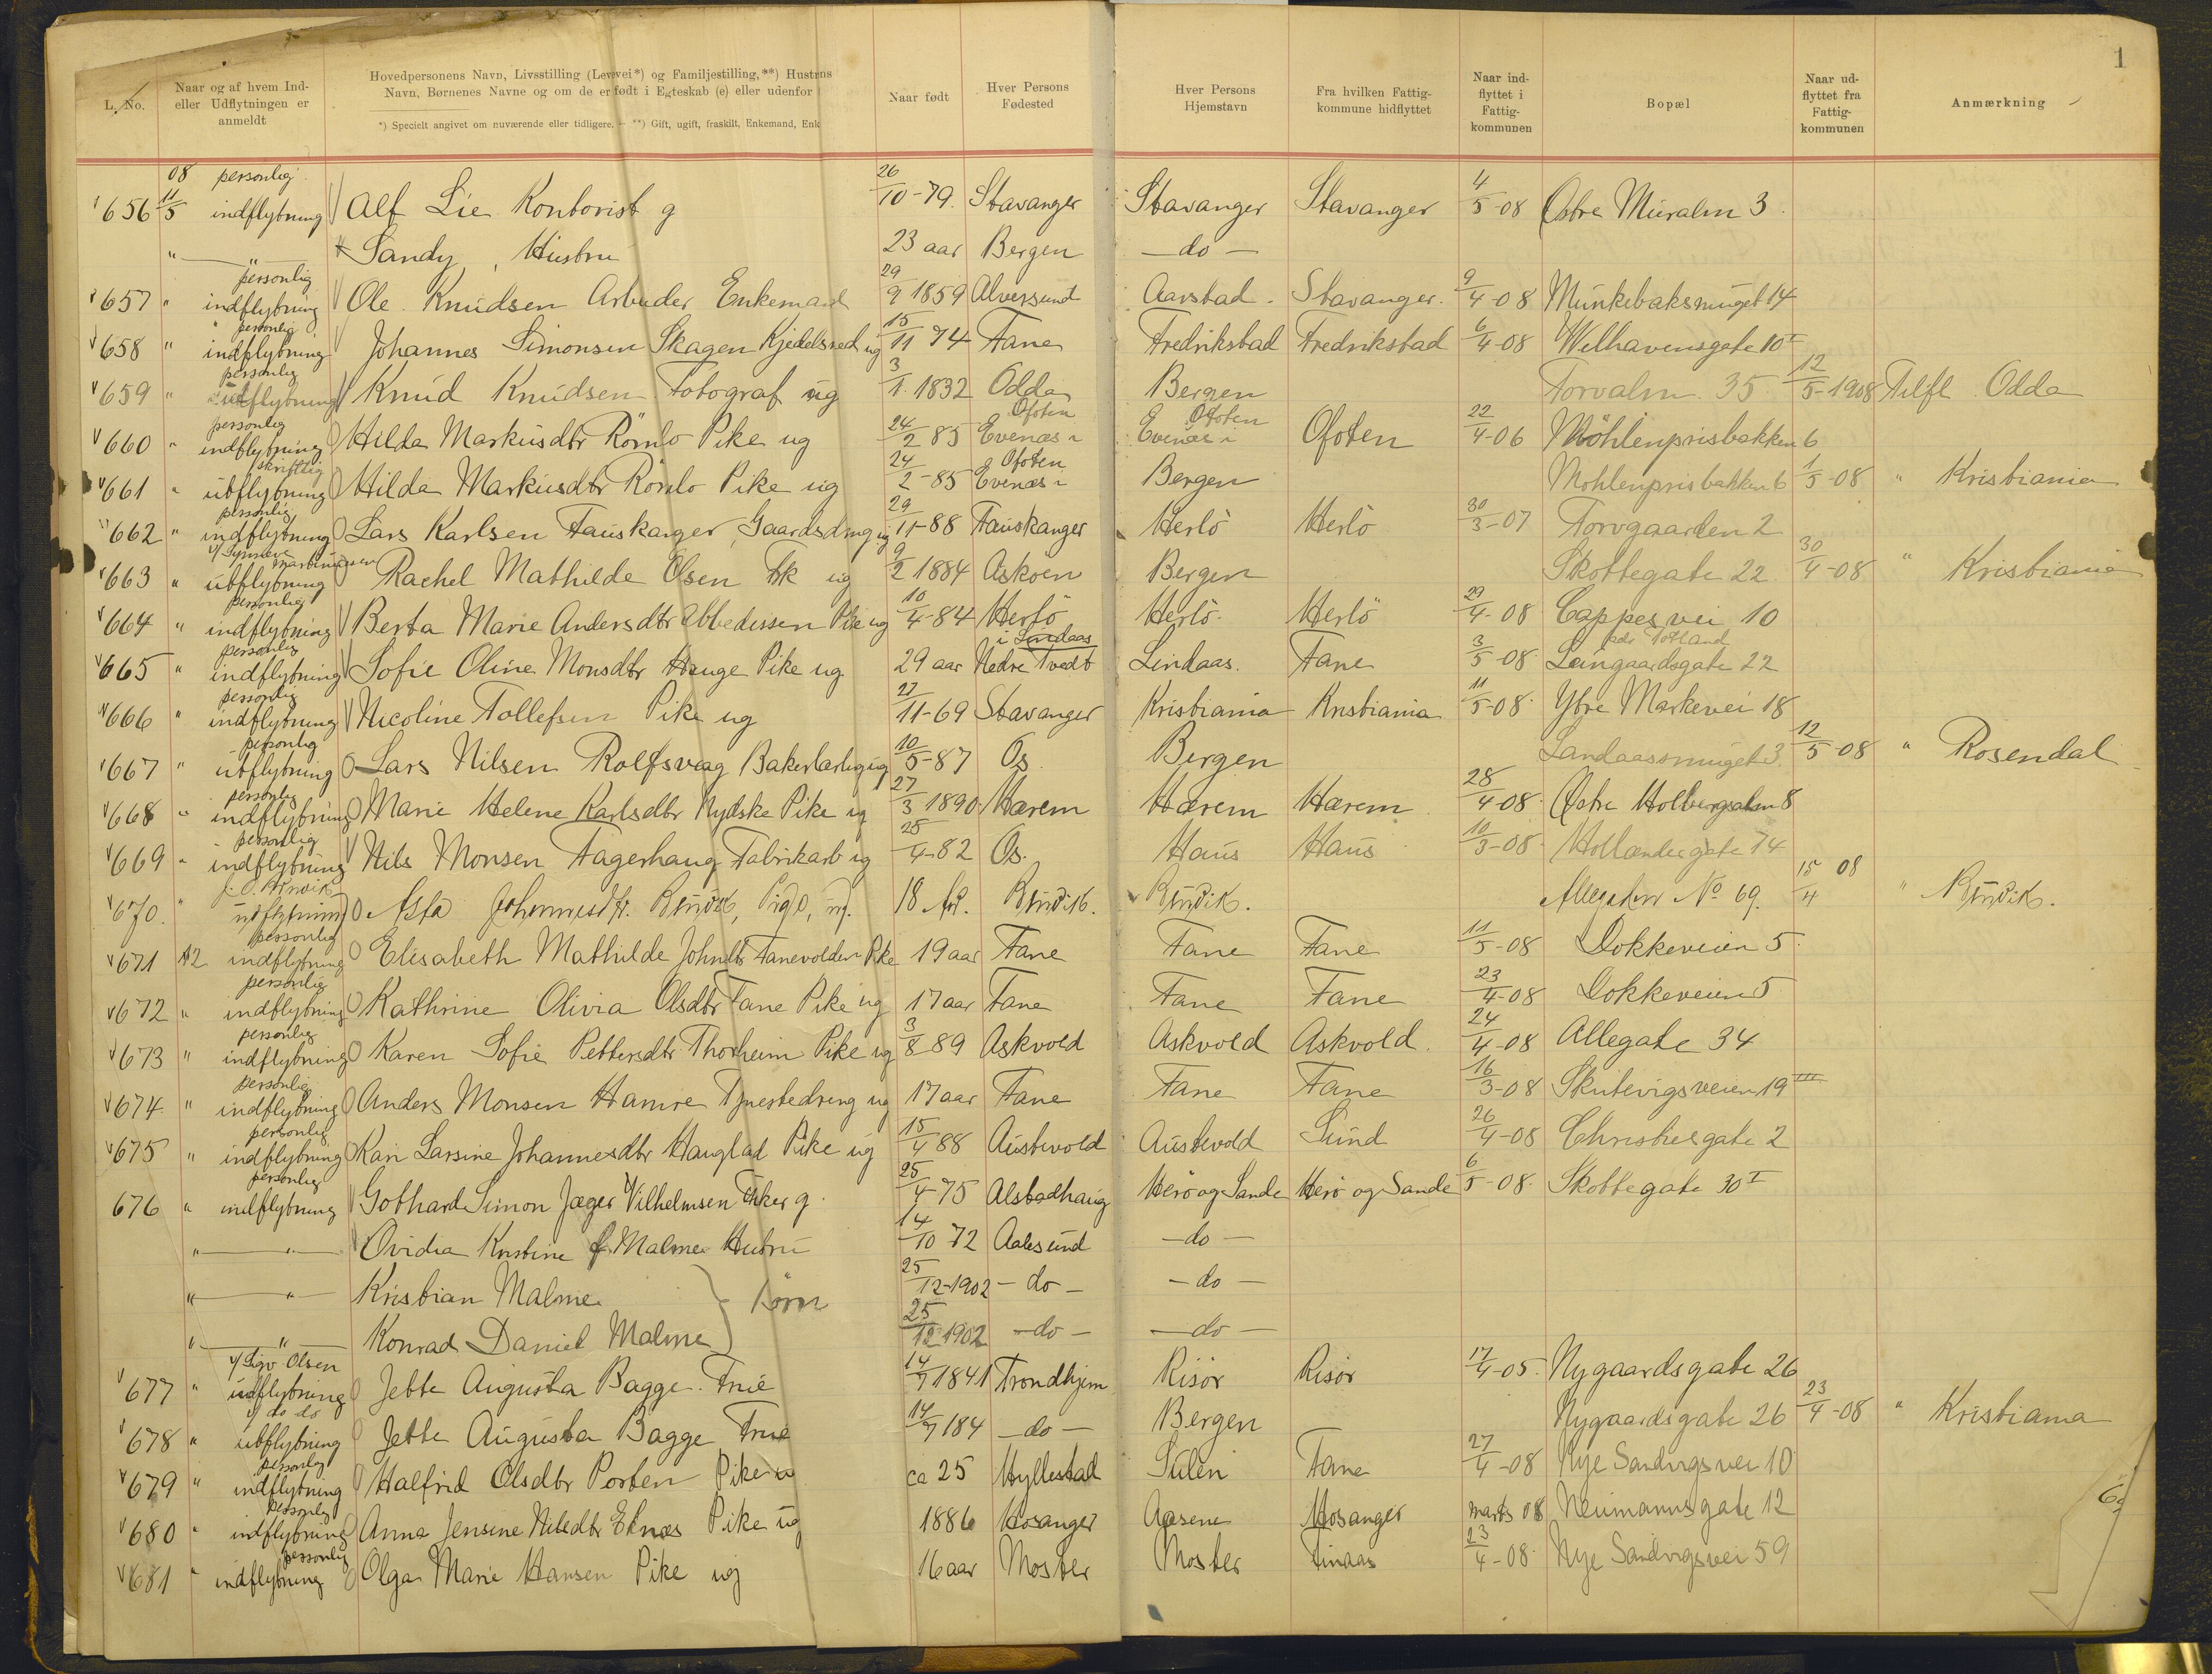 1
L. No.
Naar og af hvem Ind-
eller Udflytningen er
anmeldt
Hovedpersonens Navn, Livsstilling (Levevei*) og Familjestilling,**) Hustrus
Navn, Børnenes Navne og om de er født i Egteskab (e) eller udenfor
*) Specielt angivet om nuværende eller tidligere. — **) Gift, ugift, fraskilt, Enkemand, Enk
Naar født
Hver Persons
Fødested
Hver Persons
Hjemstavn
Fra hvilken Fattig-
kommune hidflyttet
Naar ind-
flyttet i
Fattig-
kommunen
Bopæl
Naar ud-
flyttet fra
Fattig-
kommunen
Anmærkning
656 11/5 08 personlig indflytning Alf Lie Kontorist g 26/10-79. Stavanger Stavanger Stavanger 4/5-08 Östre Muralm 3
" " Sandy, Hustru 23 aar Bergen - do -
657 " personlig indflytning Ole Knudsen Arbeider Enkemand 29/9 1859 Alversund Aarstad. Stavanger. 9/4-08 Munkebaksmuget 14
658 " personlig indflytning Johannes Simonsen Skagen Kjedelsmed ug 15/11 74 Fane Fredrikstad Fredrikstad 6/4-08 Welhavensgate 10 I
659 " personlig utflytning Knud Knudsen Fotograf ug 3/1. 1832 Odda Bergen Torvalm. 35 12/5-1908 Tilfl. Odda
660 " personlig indflytning Hilda Markusdtr Römlo Pike ug 24/2 85 Evenæs i Ofoten Evenæs i Ofoten Ofoten 22/4-06 Möhlenprisbakken 6
661 " skriftlig utflytning Hilda Markusdtr Römlo Pike ug 24/2-85 Evenæs i Ofoten Bergen Möhlenprisbakken 6 1/5-08 " Kristiania
662 " personlig indflytning Lars Karlsen Fauskanger, Gaardsdreng ug 29/11-88 Fauskanger Herlö Herlö 30/3-07 Torvgaarden 2
663 " v/ Synneve Martinussen utflytning Rachel Mathilde Olsen Fbk ug 9/2 1884 Askoen Bergen Skottegate 22 30/4-08 " Kristiania
664 " personlig indflytning Berta Marie Andersdtr Abbedissen Pike ug 10/4-84 Herlö Herlö. Herlö 29/4-08 Cappes vei 10
665 " personlig indflytning Sofie Oline Monsdtr Hauge Pike ug 29 aar Nedre Tvedt i Lindaas Lindaas. Fane 3/5-08 Langaardsgate 22
666 " personlig indflytning Nicoline Tollefsen Pike ug 27/11-69 Stavanger Kristiania Kristiania 11/5-08 Ytre Markevei 18
667 " personlig utflytning Lars Nilsen Rolfsvaag Bakerlærling ug 10/5-87 Os. Bergen Landaassmuget 3 12/5-08 " Rosendal
668 " personlig indflytning Marie Helene Karlsdtr Nydske Pike ug 27/3 1890 Harem Harem Harem 28/4-08 Östre Holbergsalm 8
669 " personlig indflytning Nils Monsen Fagerhaug Fabrikarb ug 25/4-82 Os. Haus Haus 10/3-08 Hollændergate 74
670. " utflytning Asta Johannesdtr. Pige, ug. 18 Aar. Allegaten No 69. 15/4 08 "
671 12 personlig indflytning Elisabeth Mathilde Johndtr Fanevolden Pike 19 aar Fane Fane Fane 11/5-08 Dokkeveien 5
672 " personlig indflytning Kathrine Olivia Olsdtr Fane Pike ug 17 aar Fane Fane Fane 23/4-08 Dokkeveien 5
673 " personlig indflytning Karen Sofie Pettersdtr Thorheim Pike ug 3/8 89 Askvold Askvold Askvold 24/4-08 Allegate 34
674 " personlig indflytning Anders Monsen Hamre Tjenestedreng ug 17 aar Fane Fane Fane 16/3-08 Skutevigsveien 19 III
675 " personlig indflytning Kari Larsine Johannesdtr Hauglad Pike ug 15/4 88 Austevold Austevold Sund 26/4-08 Christiesgate 2
676 " personlig indflytning Gothard Simon Jæger Vilhelmsen Fisker g. 25/4-75 Alstadhaug Herö og Sande Herö og Sande 6/5-08 Skottegate 30 I
" " Ovidia Kristine f. Malme Hustru 14/10 72 Aalesund - do -
" " Kristian Malme } börn 25/12-1902 - do - - do -
" " Konrad Daniel Malme 25/12 1902 - do - - do -
677 " v/ Sigv Olsen indflytning Jette Augusta Bagge. Frue 14/7 1841 Trondhjem Risör Risör 17/4-05 Nygaardsgate 26
678 " v/ do do utflytning Jette Augusta Bagge Frue 14/7 184 - do - Bergen Nygaardsgate 26 23/4-08 " Kristiania
679 " personlig indflytning Halfrid Olsdtr Porten Pike u ca 25 Hyllestad Sulen Fane 27/4-08 Nye Sandvigsvei 10
680 " personlig indflytning Anna Jensine Nilsdtr Eknæs Pike ug 1886 Hosanger Aasene Hosanger marts 08 Neumannsgate 12
681 " personlig indflytning Olga Marie Hansen Pike ug 16 aar Moster Moster Finaas 23/4-08 Nye Sandvigsvei 59